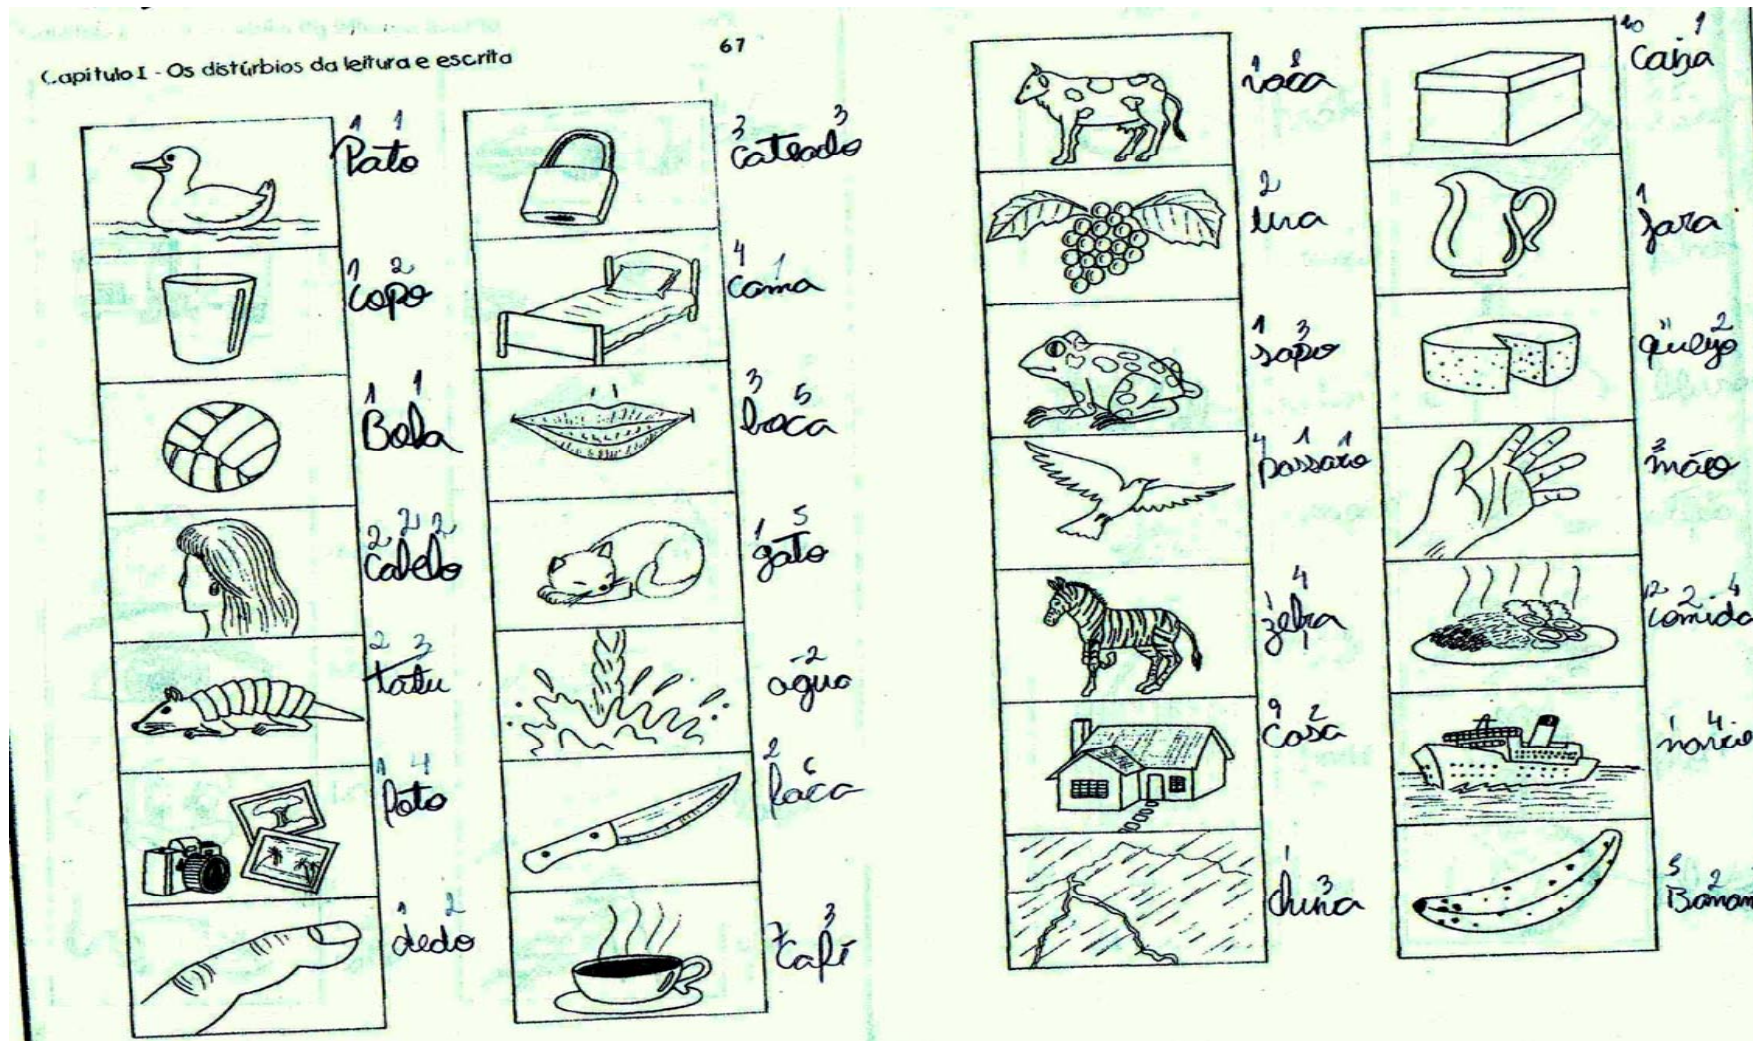 Capítulo I - Os distúrbios da leitura e escrita
67
1 1
Pato
1 2
copo
1 1
Bola
2 2 2
cabelo
2 3
tatu
1 4
foto
1 2
dedo
3 3
cateado
4 1
cama
3 5
boca
1 5
gato
2
agua
2 6
faca
7 3
café
1 8
vaca
2
uva
1 3
sapo
4 1 1
passaro
1 4
zebra
9 2
casa
1 3
chuva
10 1
caixa
1
jara
2
queijo
3
mão
12 2 4
comida
1 4
navio
3 2
Banan